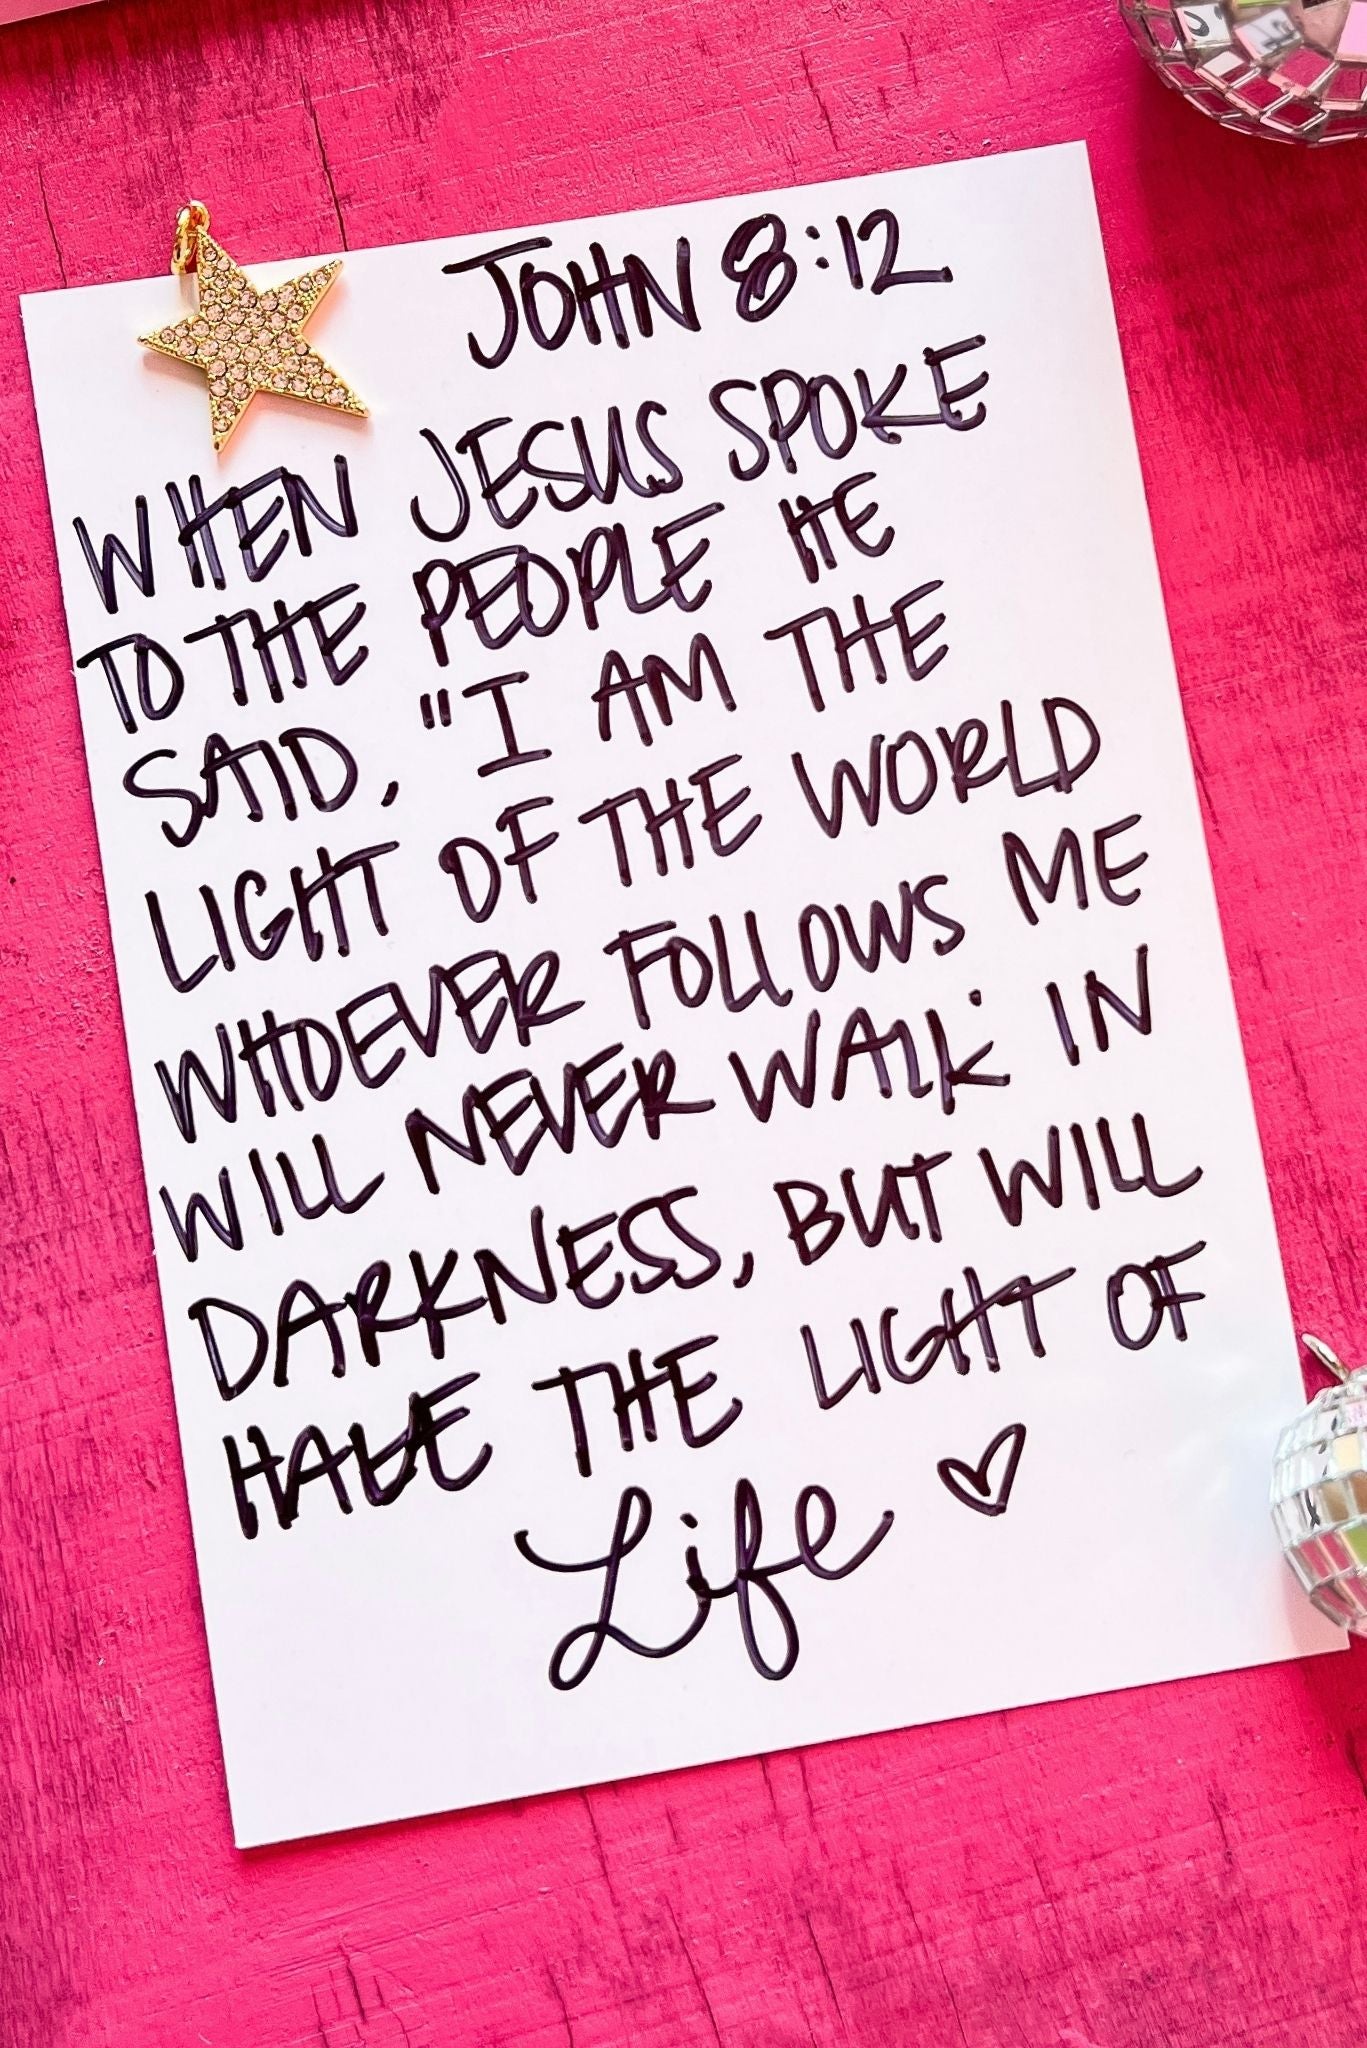 JOHN 8:12
WHEN JESUS SPOKE
TO THE PEOPLE HE
SAID, "I AM THE
LIGHT OF THE WORLD
WHOEVER FOLLOWS ME
WILL NEVER WALK IN
DARKNESS, BUT WILL
HAVE THE LIGHT OF
Life ♡